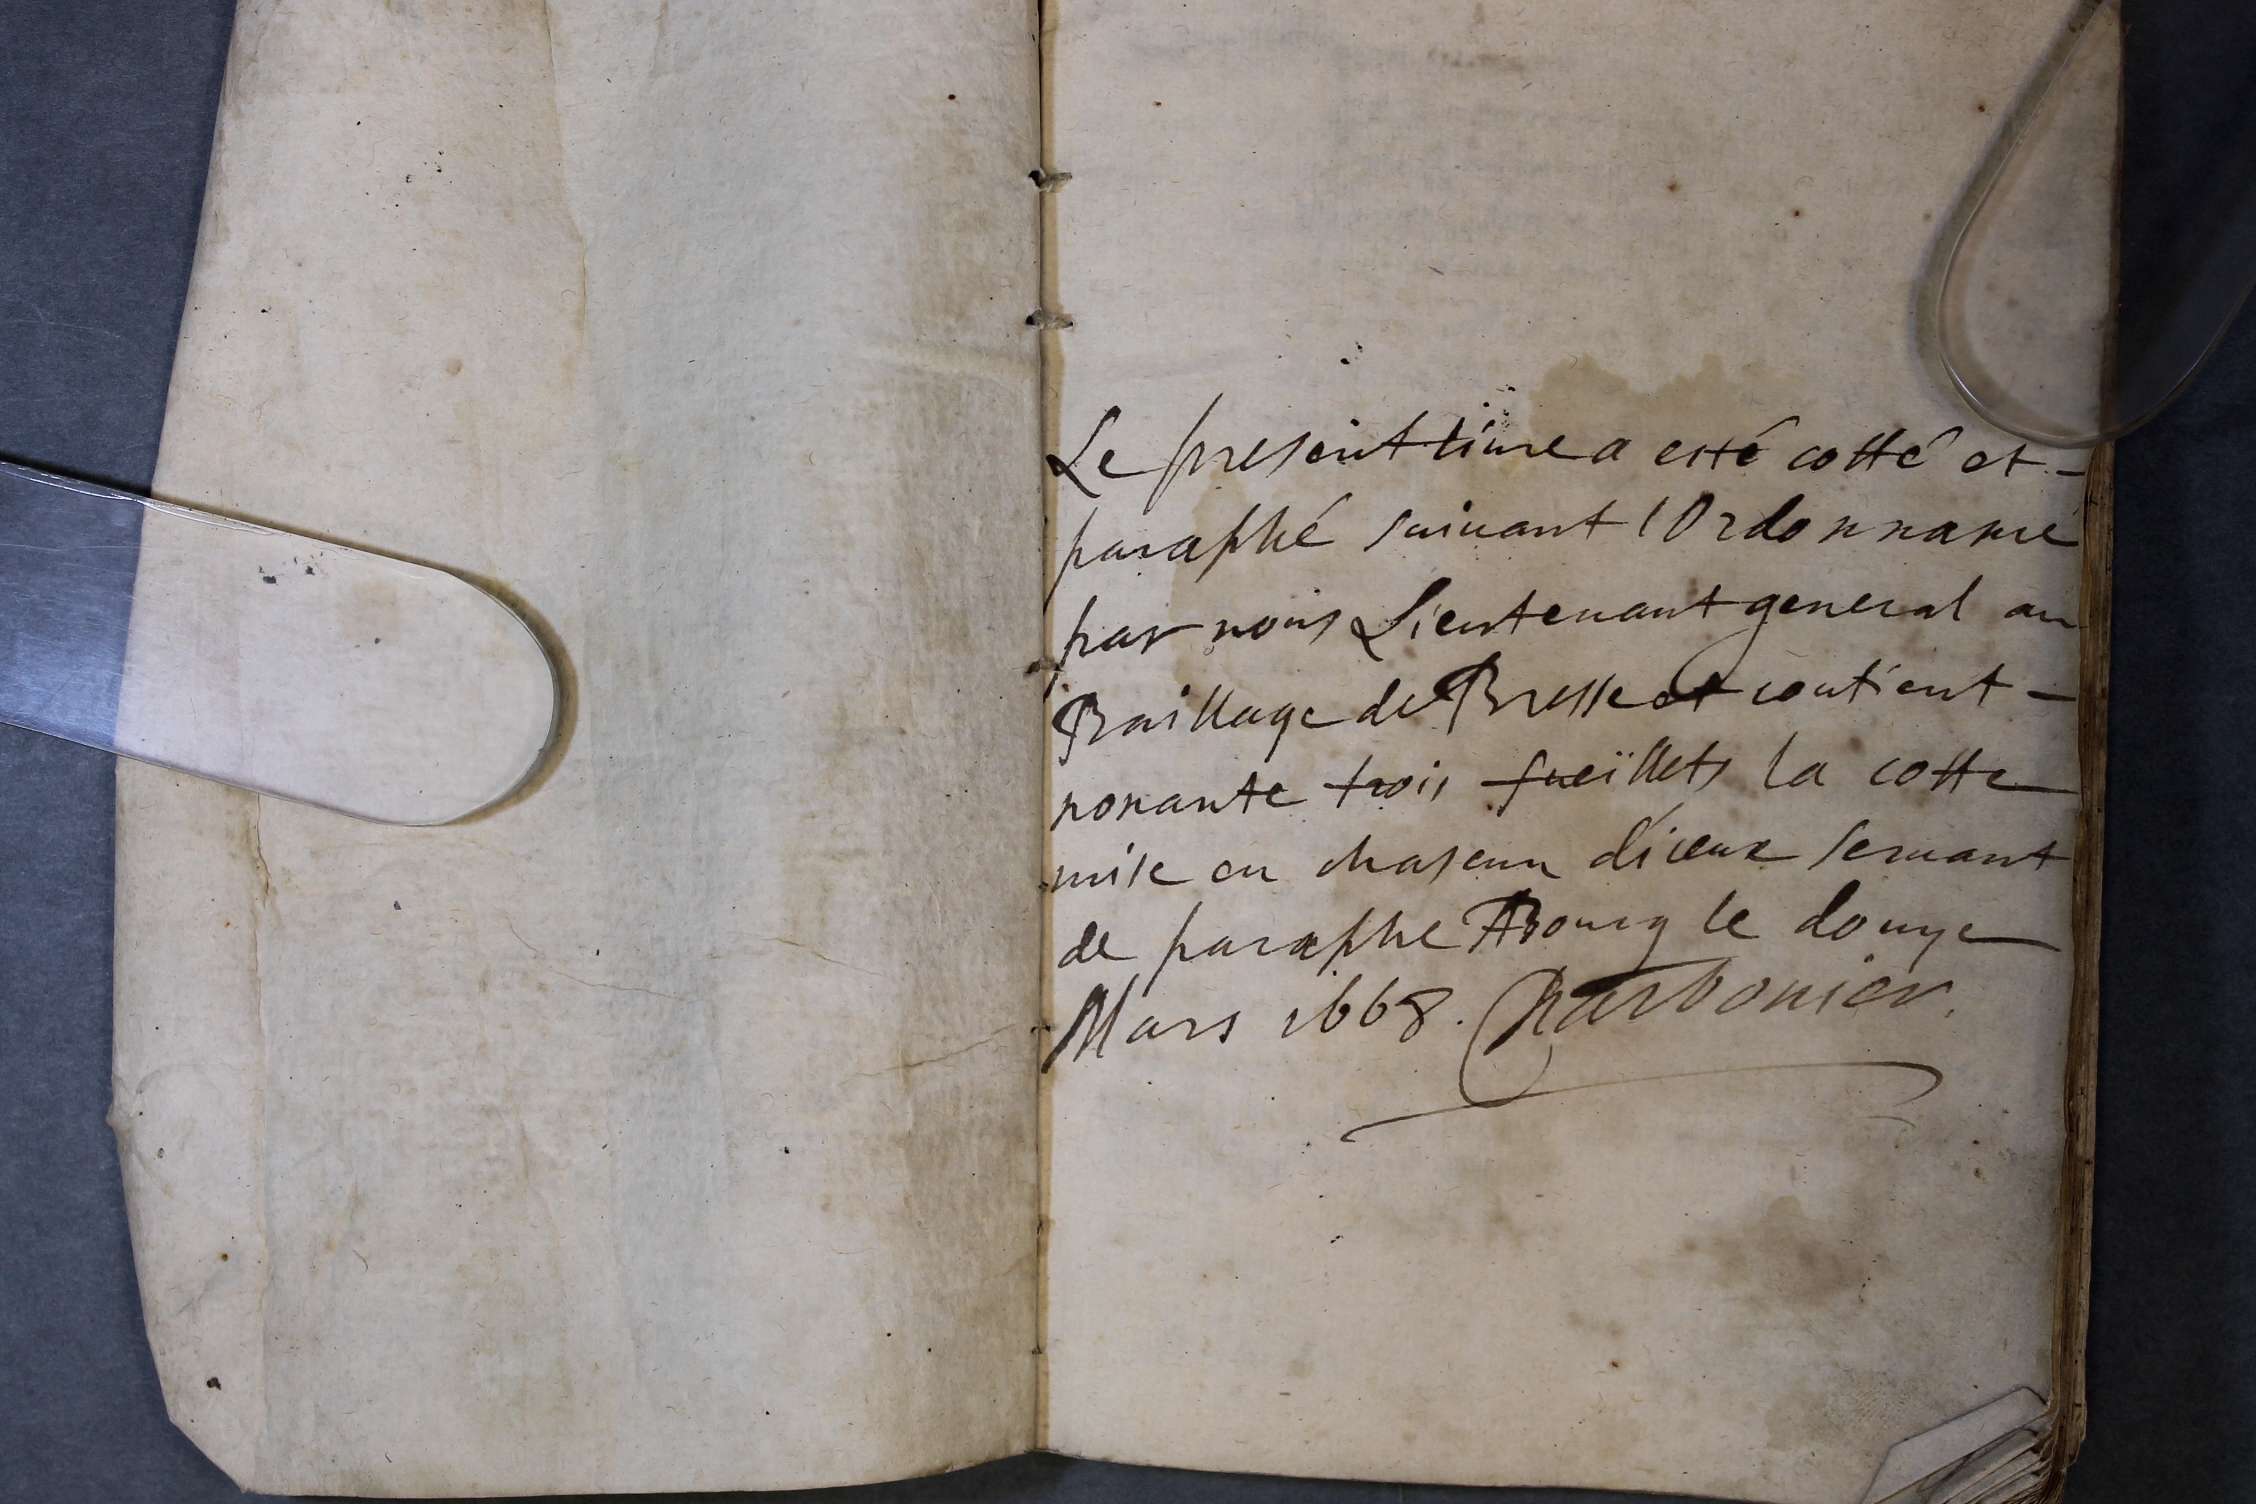 Le present liure a esté cotté et -
paraphé suiuant l'Ordonnance
par nous Lieutenant general au
Baillage de Bresse et contient -
nonante trois fueïllets la cotte
mise en chascun d'iceux seruant
de paraphe A Bourg le douze
Mars 1668. Charbonier.